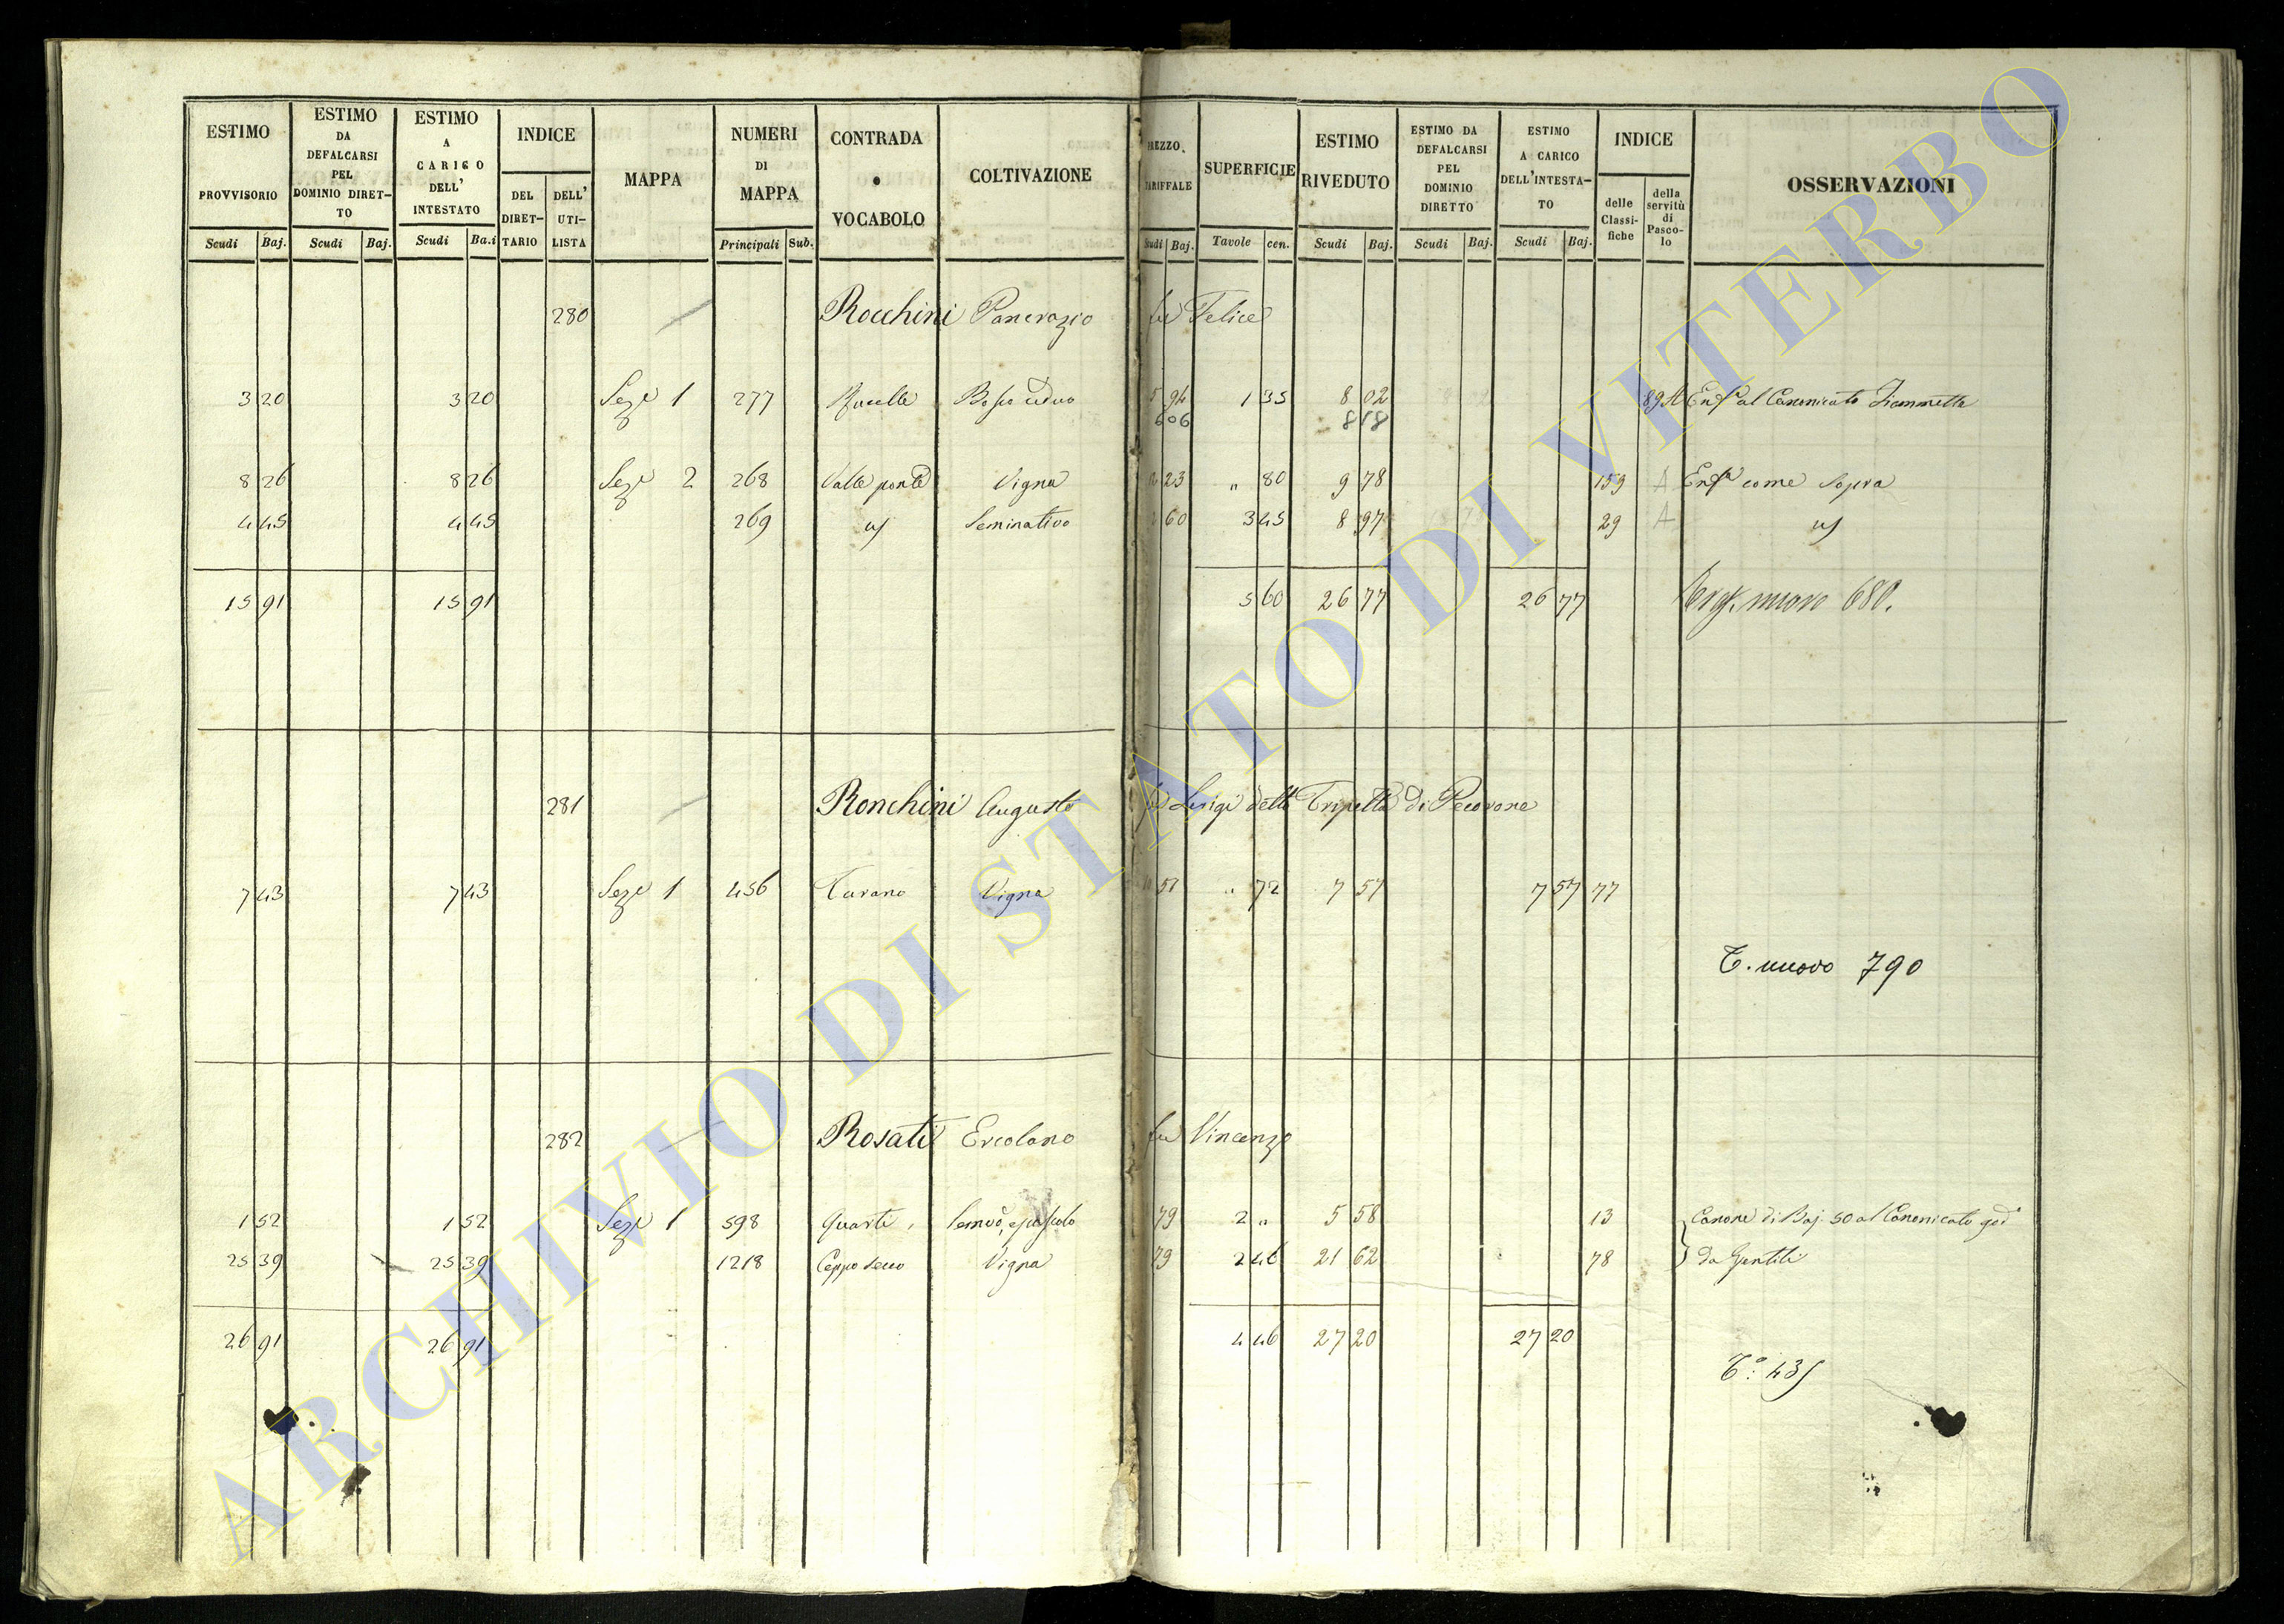 ESTIMO PROVVISORIO Scudi Baj.
ESTIMO DA DEFALCARSI PEL DOMINIO DIRETTO Scudi Baj.
ESTIMO A CARICO DELL' INTESTATO Scudi Ba.i
INDICE DEL DIRET-TARIO DELL' UTI-LISTA
MAPPA
NUMERI DI MAPPA Principali Sub.
CONTRADA o VOCABOLO
COLTIVAZIONE
PREZZO TARIFFALE Scudi Baj.
SUPERFICIE Tavole cen.
ESTIMO RIVEDUTO Scudi Baj.
ESTIMO DA DEFALCARSI PEL DOMINIO DIRETTO Scudi Baj.
ESTIMO A CARICO DELL'INTESTA-TO Scudi Baj.
INDICE delle Classi-fiche della servitù di Pasco-lo
OSSERVAZIONI
280 Rocchini Pancrazio fu Felice
3 20 3 20 Sez.e 1 277 Bosco ceduo 5 94 1 35 8 02 89 A Enf.a al Canonicato Fiammetta
606 8 18
8 26 8 26 Sez.e 2 268 Valle ponte Vigna 12 23 " 80 9 78 159 A Enf.a come sopra
4 45 4 45 269 Seminativo 2 60 3 45 8 97 29 A
15 91 15 91 5 60 26 77 26 77 nuovo 680.
281 Ronchini Augusto Luigi detto Tripetta di Pecorone
7 43 7 43 Sez.e 1 456 Vigna 10 51 " 72 7 57 7 57 77
T. nuovo 790
282 Rosati Ercolano fu Vincenzo
1 52 1 52 Sez.e 1 598 Quarti 79 2 " 5 58 13 Canone di Baj. 50 al Canonicato god.o
25 39 25 39 1218 Ceppo secco Vigna 79 2 46 21 62 78 da Gentili
26 91 26 91 4 46 27 20 27 20
T.o: 435
ARCHIVIO DI STATO DI VITERBO